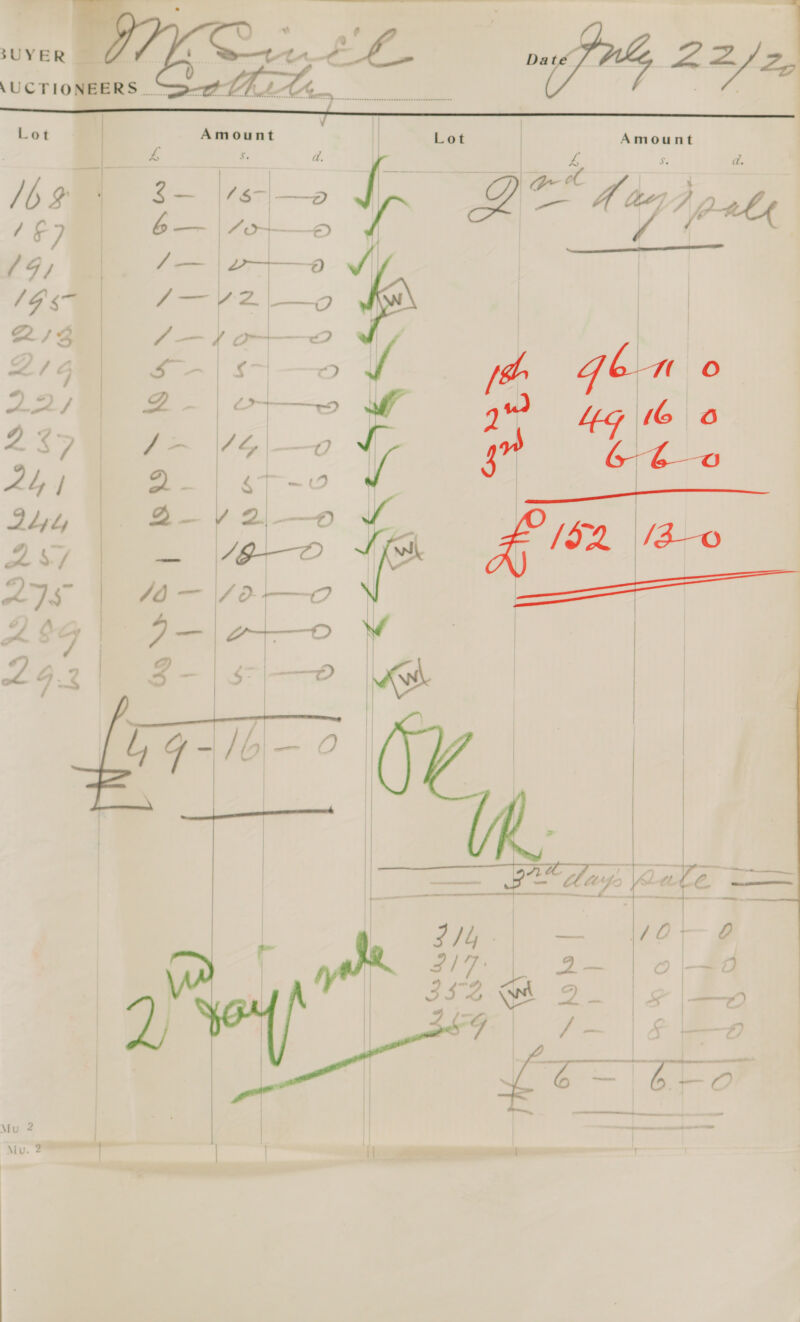 BUYER
Date July 22/20
AUCTIONEERS Sotheby
Lot Amount Lot Amount
£ s. d. £ s. d.
168 3 — 15 — 0 2nd days sale
187 6 — 10 — 0
191 1 — 0 — 0
195 1 — 12 — 0 W
213 1 — 10 — 0
219 5 — 5 — 0 1st 96 — 11 0
221 2 - 0 — 0 2nd 49 16 0
237 1 - 14 — 0 3rd 6 — 6 — 0
241 2 - 5 - 0
244 2 — 12 — 0 £152 13 — 0
257 — 18 — 0 W
275 10 — 10 — 0
289 7 — 0 — 0
293 3 - 5 — 0 W
£49 - 16 — 0
OK
3rd days sale
314 - — 10 — 0
317 2 — 0 — 0
352 W 2 - 8 — 0
359 1 — 8 — 0
2nd days sale
£6 — 6 — 0
Mu 2
Mu. 2